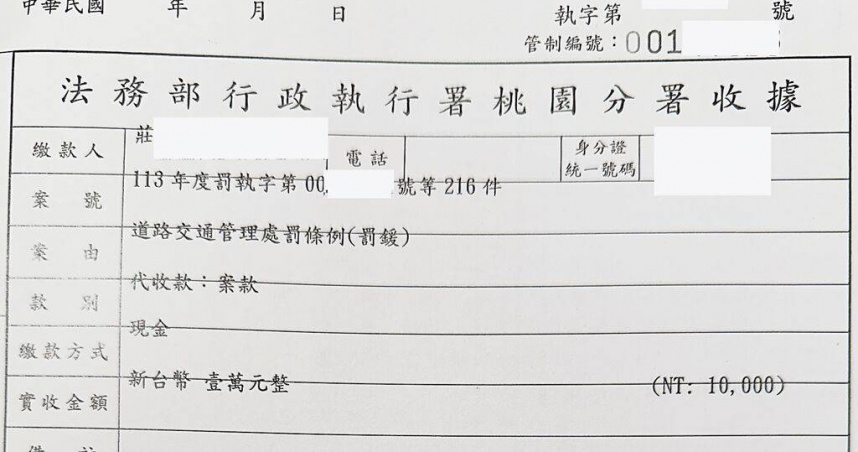 中華民國 年 月 日
執字第 號
管制編號：001
法務部行政執行署桃園分署收據
繳款人 莊 電話 身分證統一號碼
案號 113年度罰執字第00 號等216件
案由 道路交通管理處罰條例(罰鍰)
款別 代收款：案款
繳款方式 現金
實收金額 新台幣 壹萬元整 (NT: 10,000)